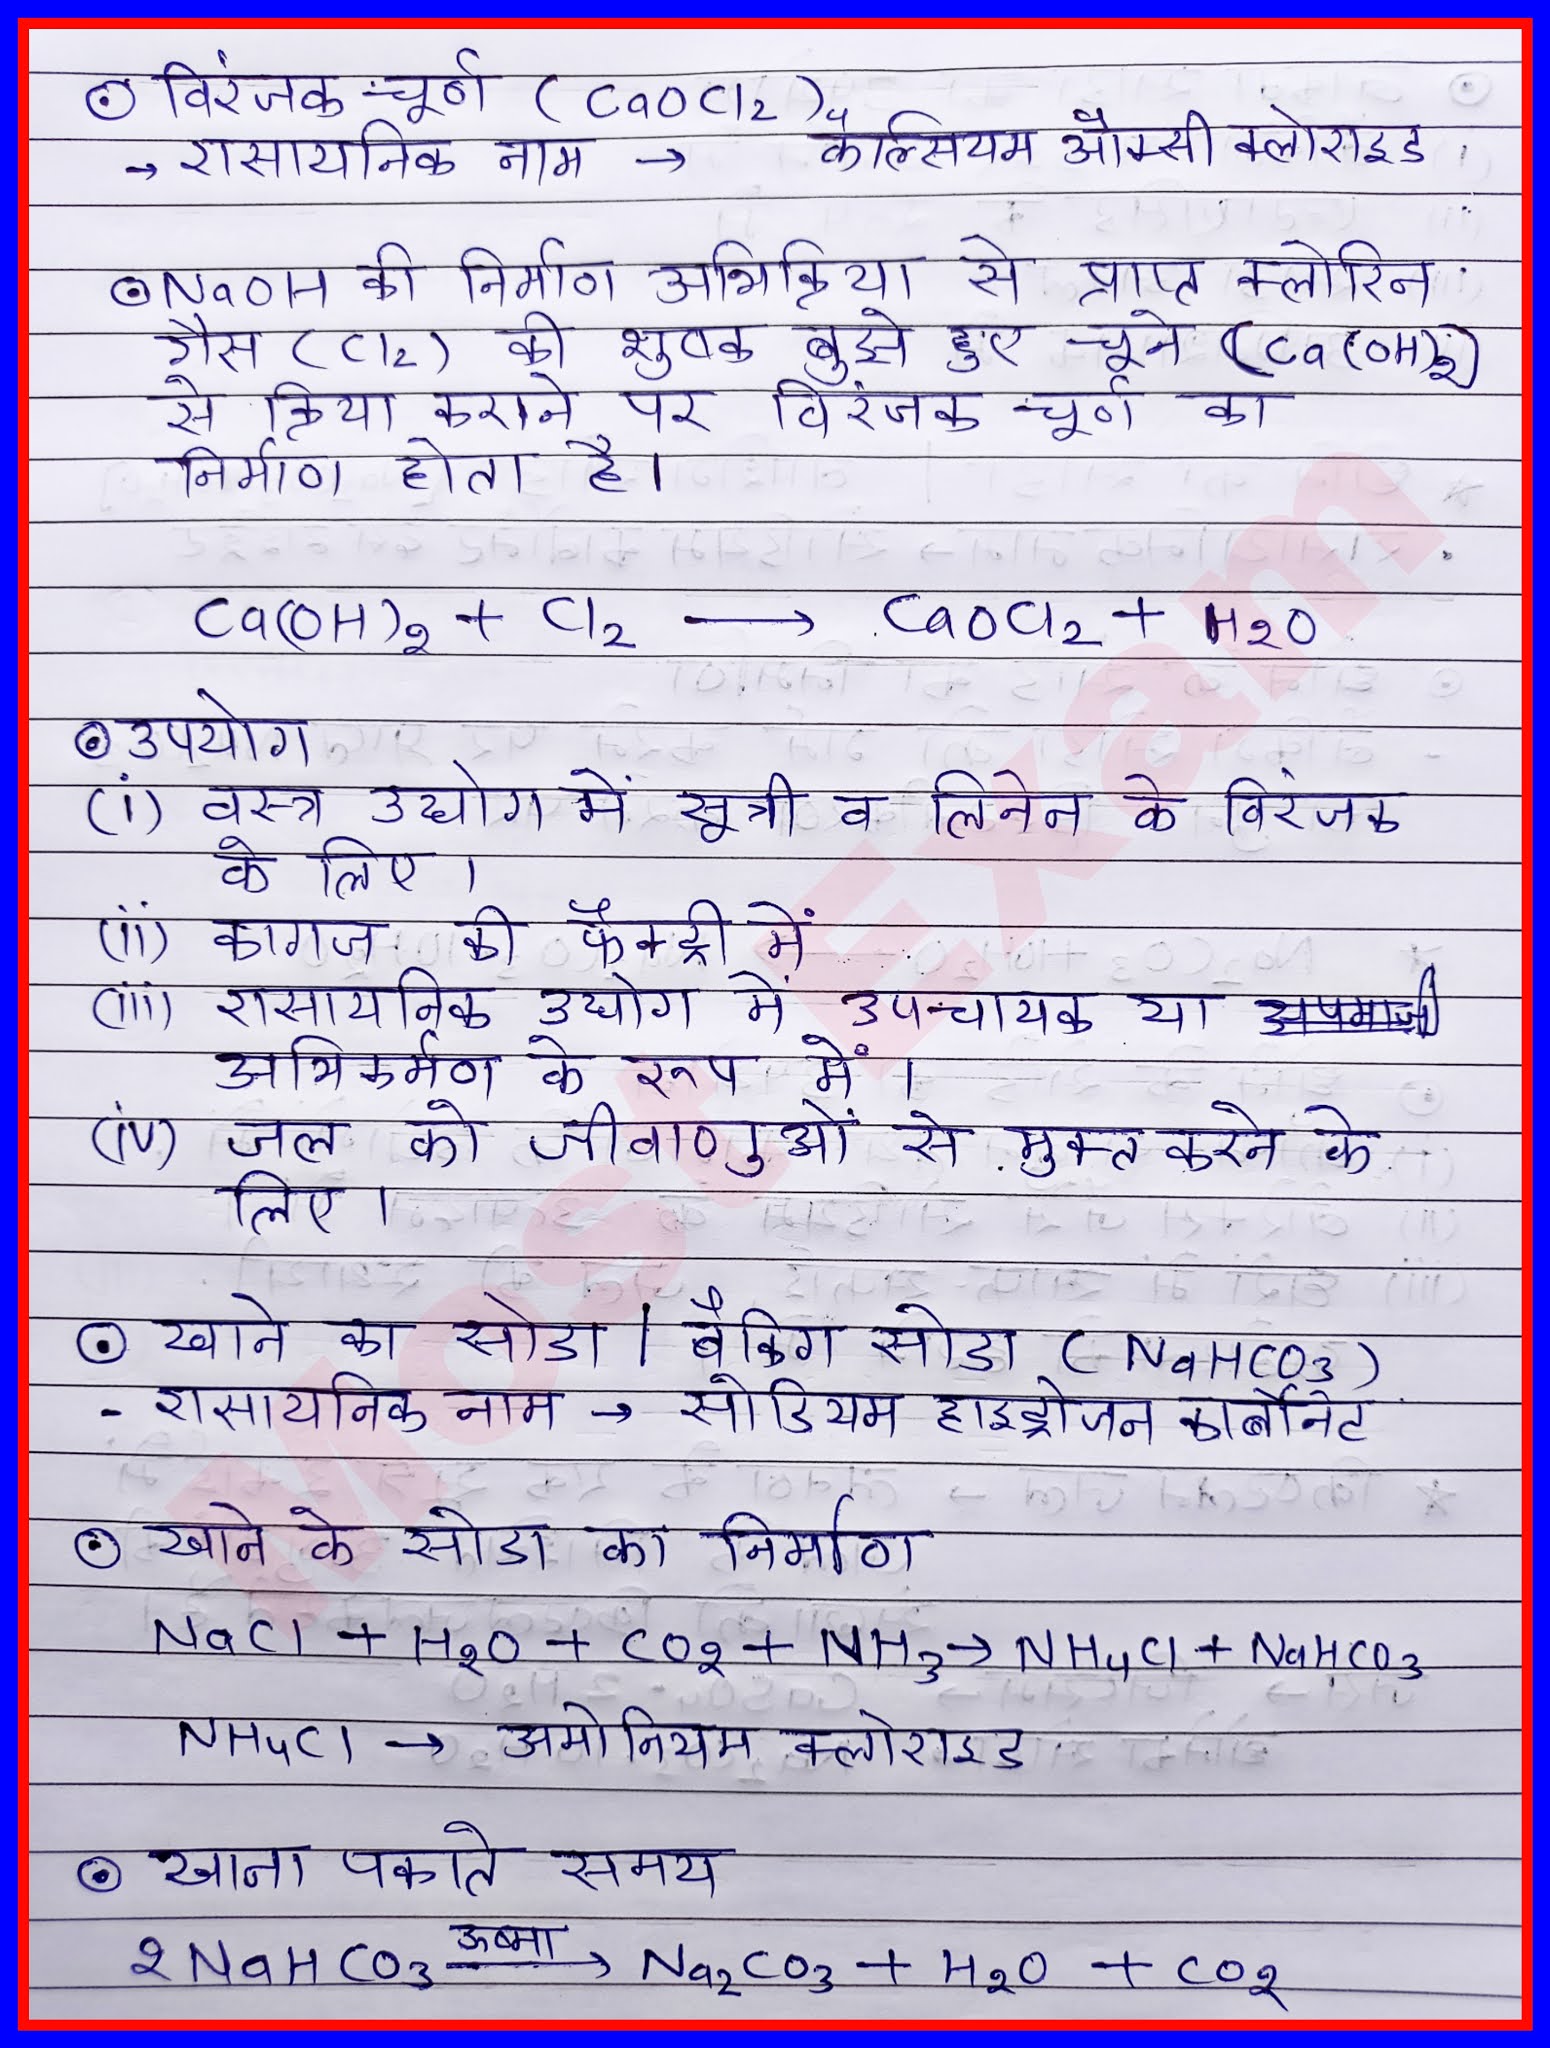 ⊙ विरंजक चूर्ण (CaOCl2)
→ रासायनिक नाम → कैल्सियम ऑक्सी क्लोराइड
⊙ NaOH की निर्माण अभिक्रिया से प्राप्त क्लोरिन
गैस (Cl2) की शुष्क बुझे हुए चूने (Ca(OH)2)
से क्रिया कराने पर विरंजक चूर्ण का
निर्माण होता है।
Ca(OH)2 + Cl2 → CaOCl2 + H2O
⊙ उपयोग
(i) वस्त्र उद्योग में सूत्री व लिनेन के विरंजक
के लिए।
(ii) कागज की फैक्ट्री में
(iii) रासायनिक उद्योग में उपचायक या
अभिकर्मण के रूप में।
(iv) जल को जीवाणुओं से मुक्त करने के
लिए।
⊙ खाने का सोडा / बैकिंग सोडा (NaHCO3)
- रासायनिक नाम → सोडियम हाइड्रोजन कार्बोनेट
⊙ खाने के सोडा का निर्माण
NaCl + H2O + CO2 + NH3 → NH4Cl + NaHCO3
NH4Cl → अमोनियम क्लोराइड
⊙ खाना पकाते समय
ऊष्मा
2NaHCO3 → Na2CO3 + H2O + CO2
Most Exam